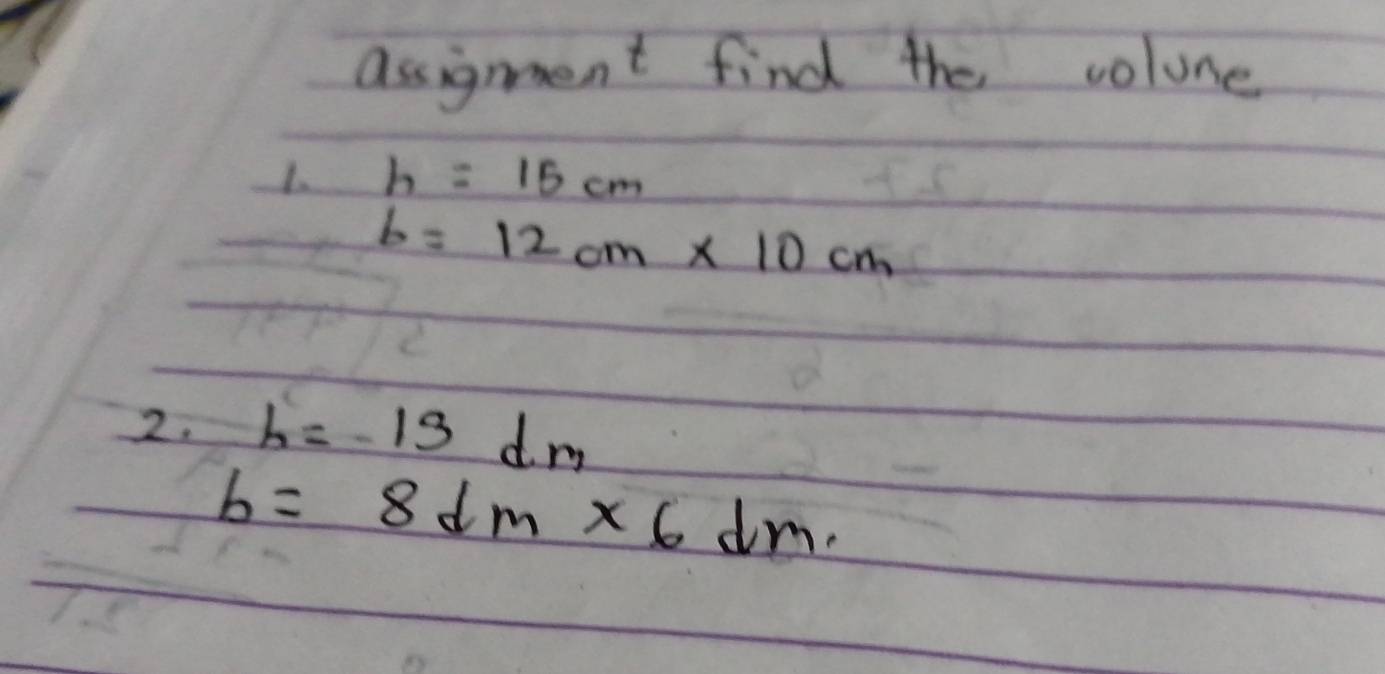 assignment find the volume
1. h = 15 cm
b = 12 cm x 10 cm
2. h = 13 dm
b = 8 dm x 6 dm.